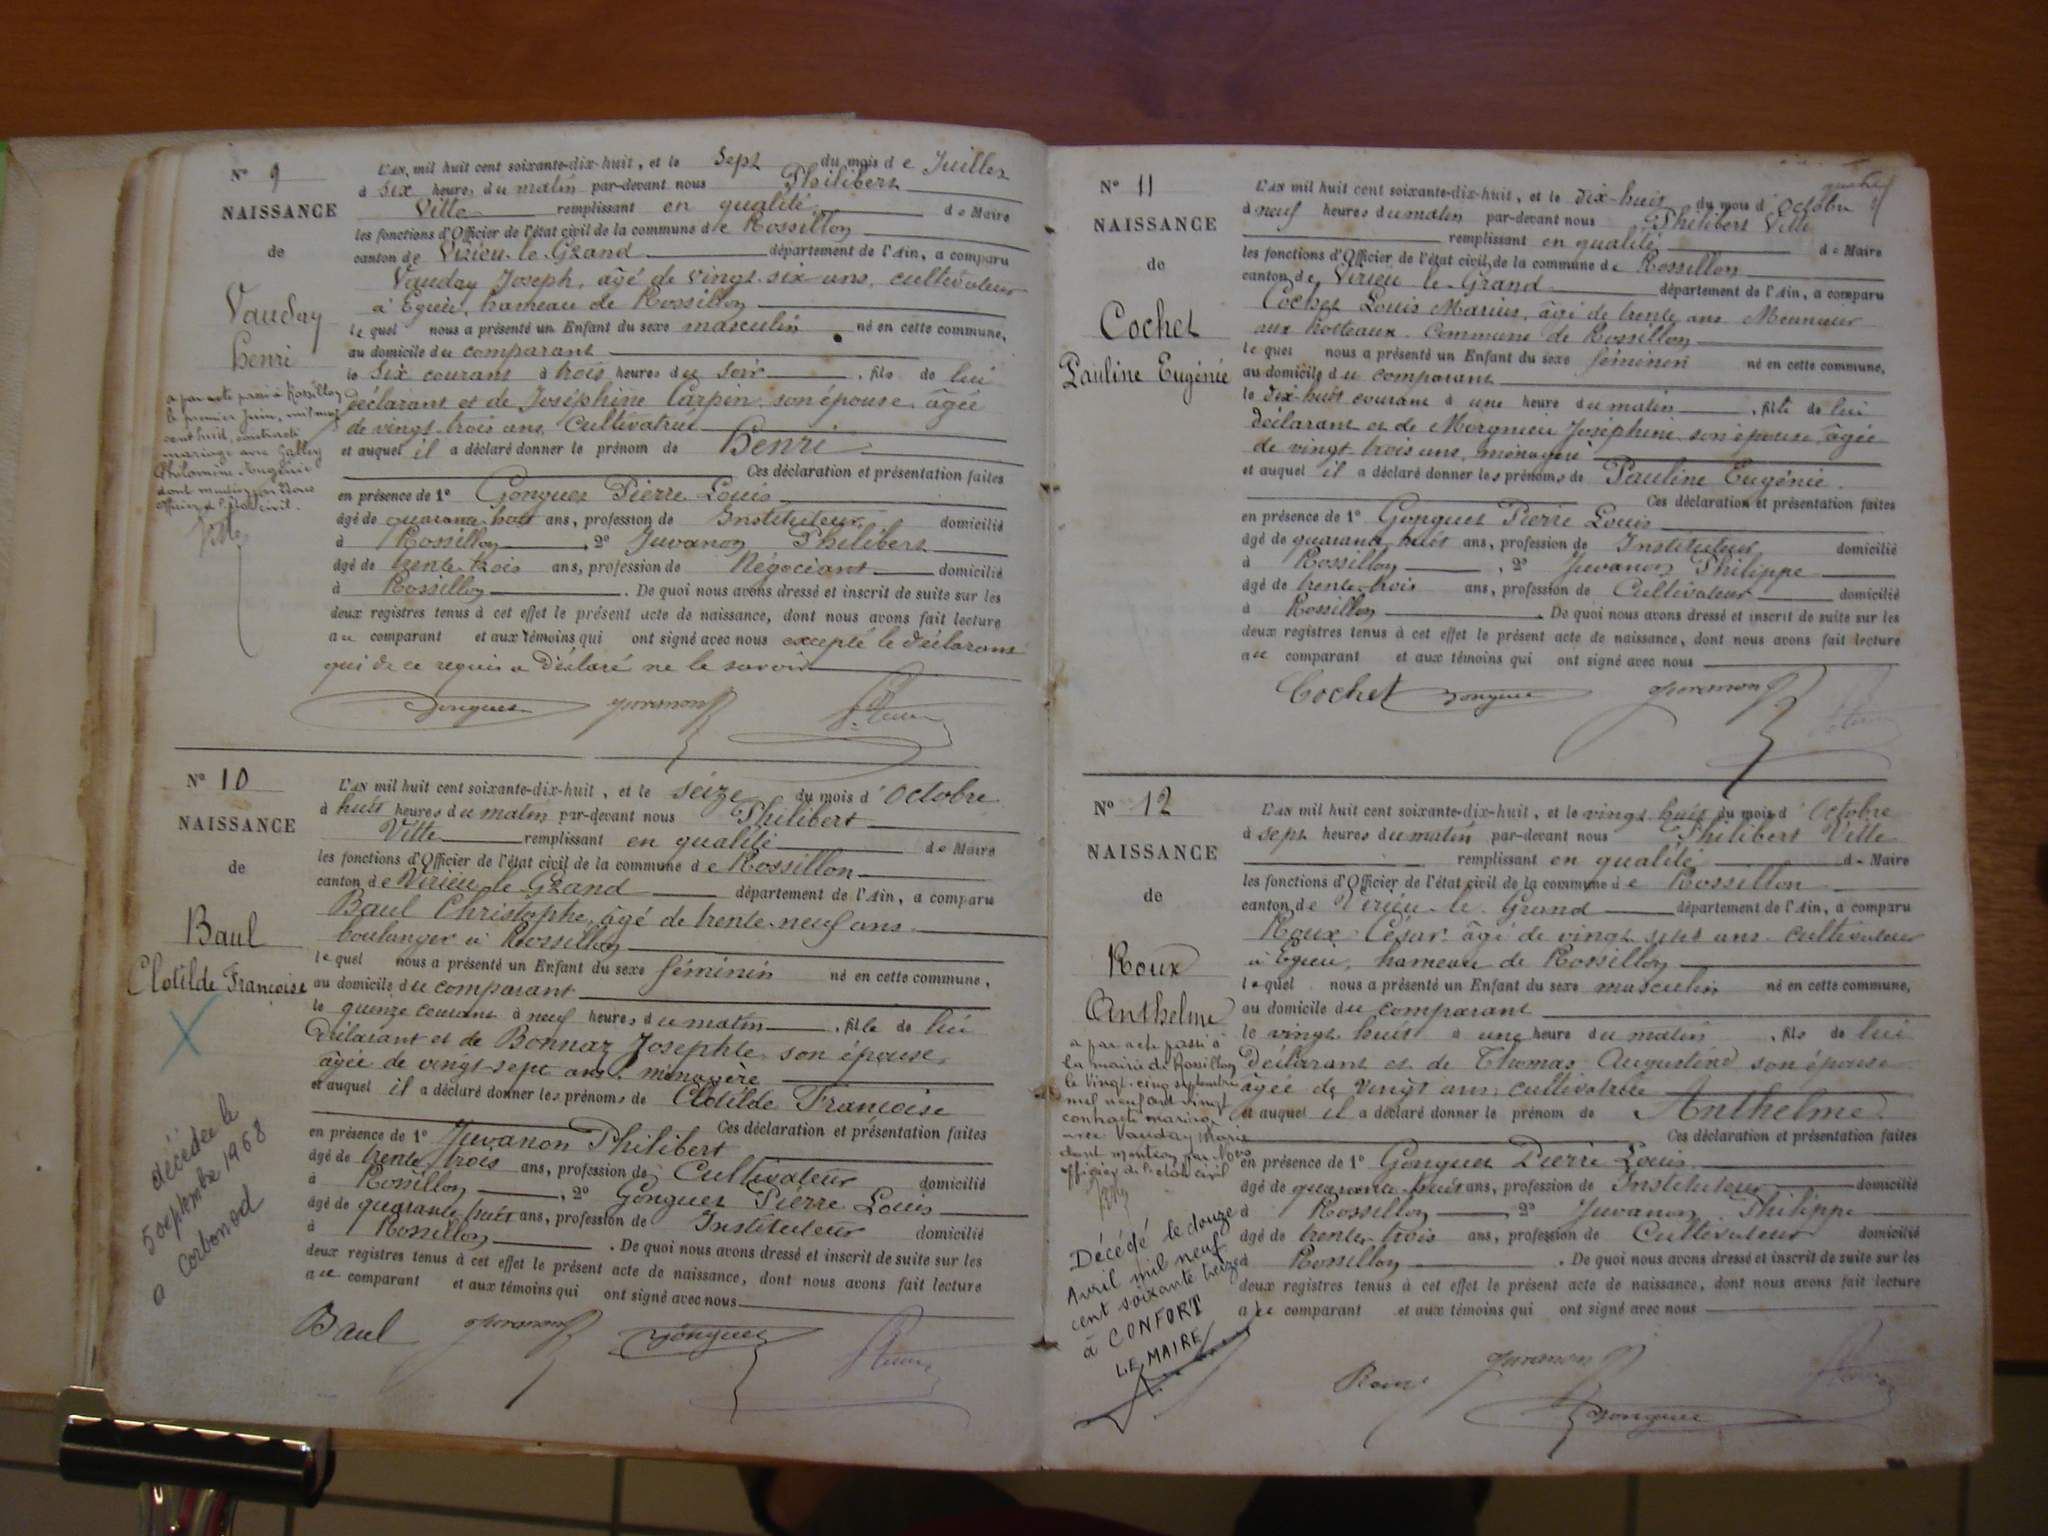 N° 9
NAISSANCE
de
Vauday
Henri
a par acte passé à Rossillon
le premier Juin, mil neuf
cent huit, contracté
mariage avec Gallay
Philomène Eugénie
dont mention par Nous
Officier de l'état civil.
Ville
L'AN mil huit cent soixante-dix-huit, et le Sept du mois de Juillet
à six heures du matin par-devant nous Philibert
Ville remplissant en qualité de Maire
les fonctions d'Officier de l'état civil de la commune de Rossillon
canton de Virieu-le-Grand département de l'Ain, a comparu
Vauday Joseph, âgé de vingt-six ans, cultivateur
à Egieu, hameau de Rossillon
lequel nous a présenté un Enfant du sexe masculin né en cette commune,
au domicile du comparant
le six courant à trois heures du soir, fils de lui
déclarant et de Joséphine Carpin son épouse âgée
de vingt-trois ans, cultivatrice
et auquel il a déclaré donner le prénom de Henri
Ces déclaration et présentation faites
en présence de 1° Gonguet Pierre Louis
âgé de quarante-huit ans, profession de Instituteur domicilié
à Rossillon, 2° Juvanon Philibert
âgé de trente-trois ans, profession de Négociant domicilié
à Rossillon. De quoi nous avons dressé et inscrit de suite sur les
deux registres tenus à cet effet le présent acte de naissance, dont nous avons fait lecture
au comparant et aux témoins qui ont signé avec nous excepté le déclarant
qui de ce requis a déclaré ne le savoir
Gonguet Juvanon P. Ville
N° 10
NAISSANCE
de
Baul
Clotilde Françoise
décédée le
5 septembre 1968
à Corbonod
L'AN mil huit cent soixante-dix-huit, et le seize du mois d'Octobre
à huit heures du matin par-devant nous Philibert
Ville remplissant en qualité de Maire
les fonctions d'Officier de l'état civil de la commune de Rossillon
canton de Virieu-le-Grand département de l'Ain, a comparu
Baul Christophe, âgé de trente-neuf ans
boulanger à Rossillon
lequel nous a présenté un Enfant du sexe féminin né en cette commune,
au domicile du comparant
le quinze courant à neuf heures du matin, fille de lui
Déclarant et de Bonnaz Josephte son épouse,
âgée de vingt-sept ans, ménagère
et auquel il a déclaré donner les prénoms de Clotilde Françoise
Ces déclaration et présentation faites
en présence de 1° Juvanon Philibert
âgé de trente-trois ans, profession de Cultivateur domicilié
à Rossillon, 2° Gonguet Pierre Louis
âgé de quarante-huit ans, profession de Instituteur domicilié
à Rossillon. De quoi nous avons dressé et inscrit de suite sur les
deux registres tenus à cet effet le présent acte de naissance, dont nous avons fait lecture
au comparant et aux témoins qui ont signé avec nous
Baul Juvanon Gonguet P. Ville
N° 11
NAISSANCE
de
Cochet
Pauline Eugénie
L'AN mil huit cent soixante-dix-huit, et le dix-huit du mois d'Octobre
à neuf heures du matin par-devant nous Philibert Ville
remplissant en qualité de Maire
les fonctions d'Officier de l'état civil de la commune de Rossillon
canton de Virieu-le-Grand département de l'Ain, a comparu
Cochet Louis Marius, âgé de trente ans Meunier
aux hotteaux commune de Rossillon
lequel nous a présenté un Enfant du sexe féminin né en cette commune,
au domicile du comparant
le dix-huit courant à une heure du matin, fille de lui
déclarant et de Morgnieu Joséphine son épouse âgée
de vingt-trois ans, ménagère
et auquel il a déclaré donner les prénoms de Pauline Eugénie.
Ces déclaration et présentation faites
en présence de 1° Gonguet Pierre Louis
âgé de quarante-huit ans, profession de Instituteur domicilié
à Rossillon, 2° Juvanon Philippe
âgé de trente-trois ans, profession de Cultivateur domicilié
à Rossillon. De quoi nous avons dressé et inscrit de suite sur les
deux registres tenus à cet effet le présent acte de naissance, dont nous avons fait lecture
au comparant et aux témoins qui ont signé avec nous
Cochet Gonguet Juvanon P. Ville
N° 12
NAISSANCE
de
Roux
Anthelme
a par acte passé à
la mairie de Rossillon
le vingt-cinq septembre
mil neuf cent vingt
contracté mariage
avec Vauday Marie
dont mention par Nous
officier de l'état civil
Décédé le douze
Avril mil neuf
cent soixante treize
à CONFORT
LE MAIRE
L'AN mil huit cent soixante-dix-huit, et le vingt-huit du mois d'Octobre
à sept heures du matin par-devant nous Philibert Ville
remplissant en qualité de Maire
les fonctions d'Officier de l'état civil de la commune de Rossillon
canton de Virieu-le-Grand département de l'Ain, a comparu
Roux César âgé de vingt-sept ans cultivateur
à Egieu, hameau de Rossillon
lequel nous a présenté un Enfant du sexe masculin né en cette commune,
au domicile du comparant
le vingt-huit à une heure du matin, fils de lui
Déclarant et de Thomas Augustine son épouse
âgée de vingt ans, cultivatrice
et auquel il a déclaré donner le prénom de Anthelme.
Ces déclaration et présentation faites
en présence de 1° Gonguet Pierre Louis
âgé de quarante-huit ans, profession de Instituteur domicilié
à Rossillon, 2° Juvanon Philippe
âgé de trente-trois ans, profession de Cultivateur domicilié
à Rossillon. De quoi nous avons dressé et inscrit de suite sur les
deux registres tenus à cet effet le présent acte de naissance, dont nous avons fait lecture
au comparant et aux témoins qui ont signé avec nous
Roux Juvanon Gonguet P. Ville